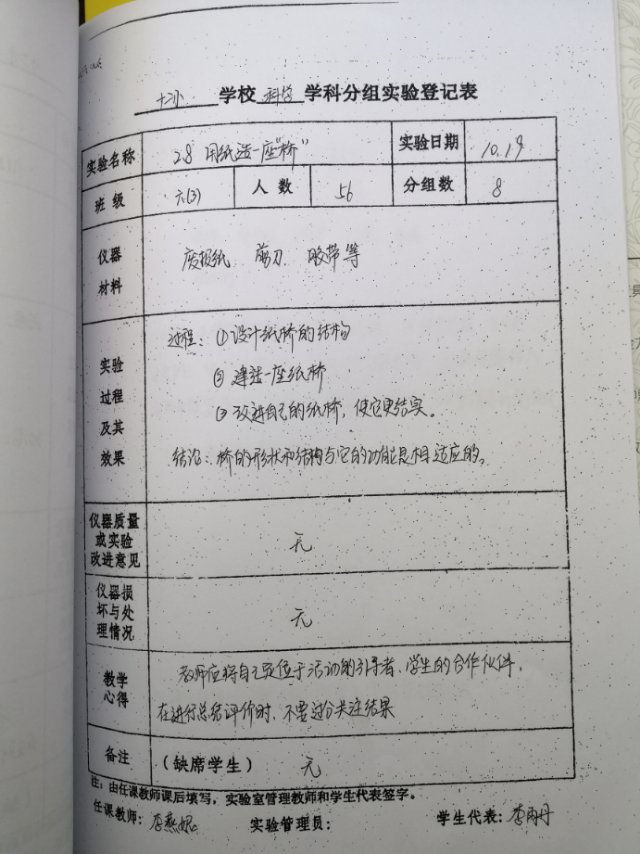 十小 学校 科学 学科分组实验登记表
实验名称 2.8 用纸造一座“桥” 实验日期 10.19
班 级 六(3) 人 数 56 分组数 8
仪器材料 废报纸 剪刀 胶带等
实验过程及其效果
过程：①设计纸桥的结构
② 建造一座纸桥
③ 改进自己的纸桥，使它更结实。
结论：桥的形状和结构与它的功能是相适应的。
仪器质量或实验改进意见 无
仪器损坏与处理情况 无
教学心得 教师应将自己定位于活动的引导者、学生的合作伙伴，
在进行总结评价时，不要过分关注结果
备注 （缺席学生） 无
注：由任课教师课后填写，实验室管理教师和学生代表签字。
任课教师： 实验管理员： 学生代表：李雨丹